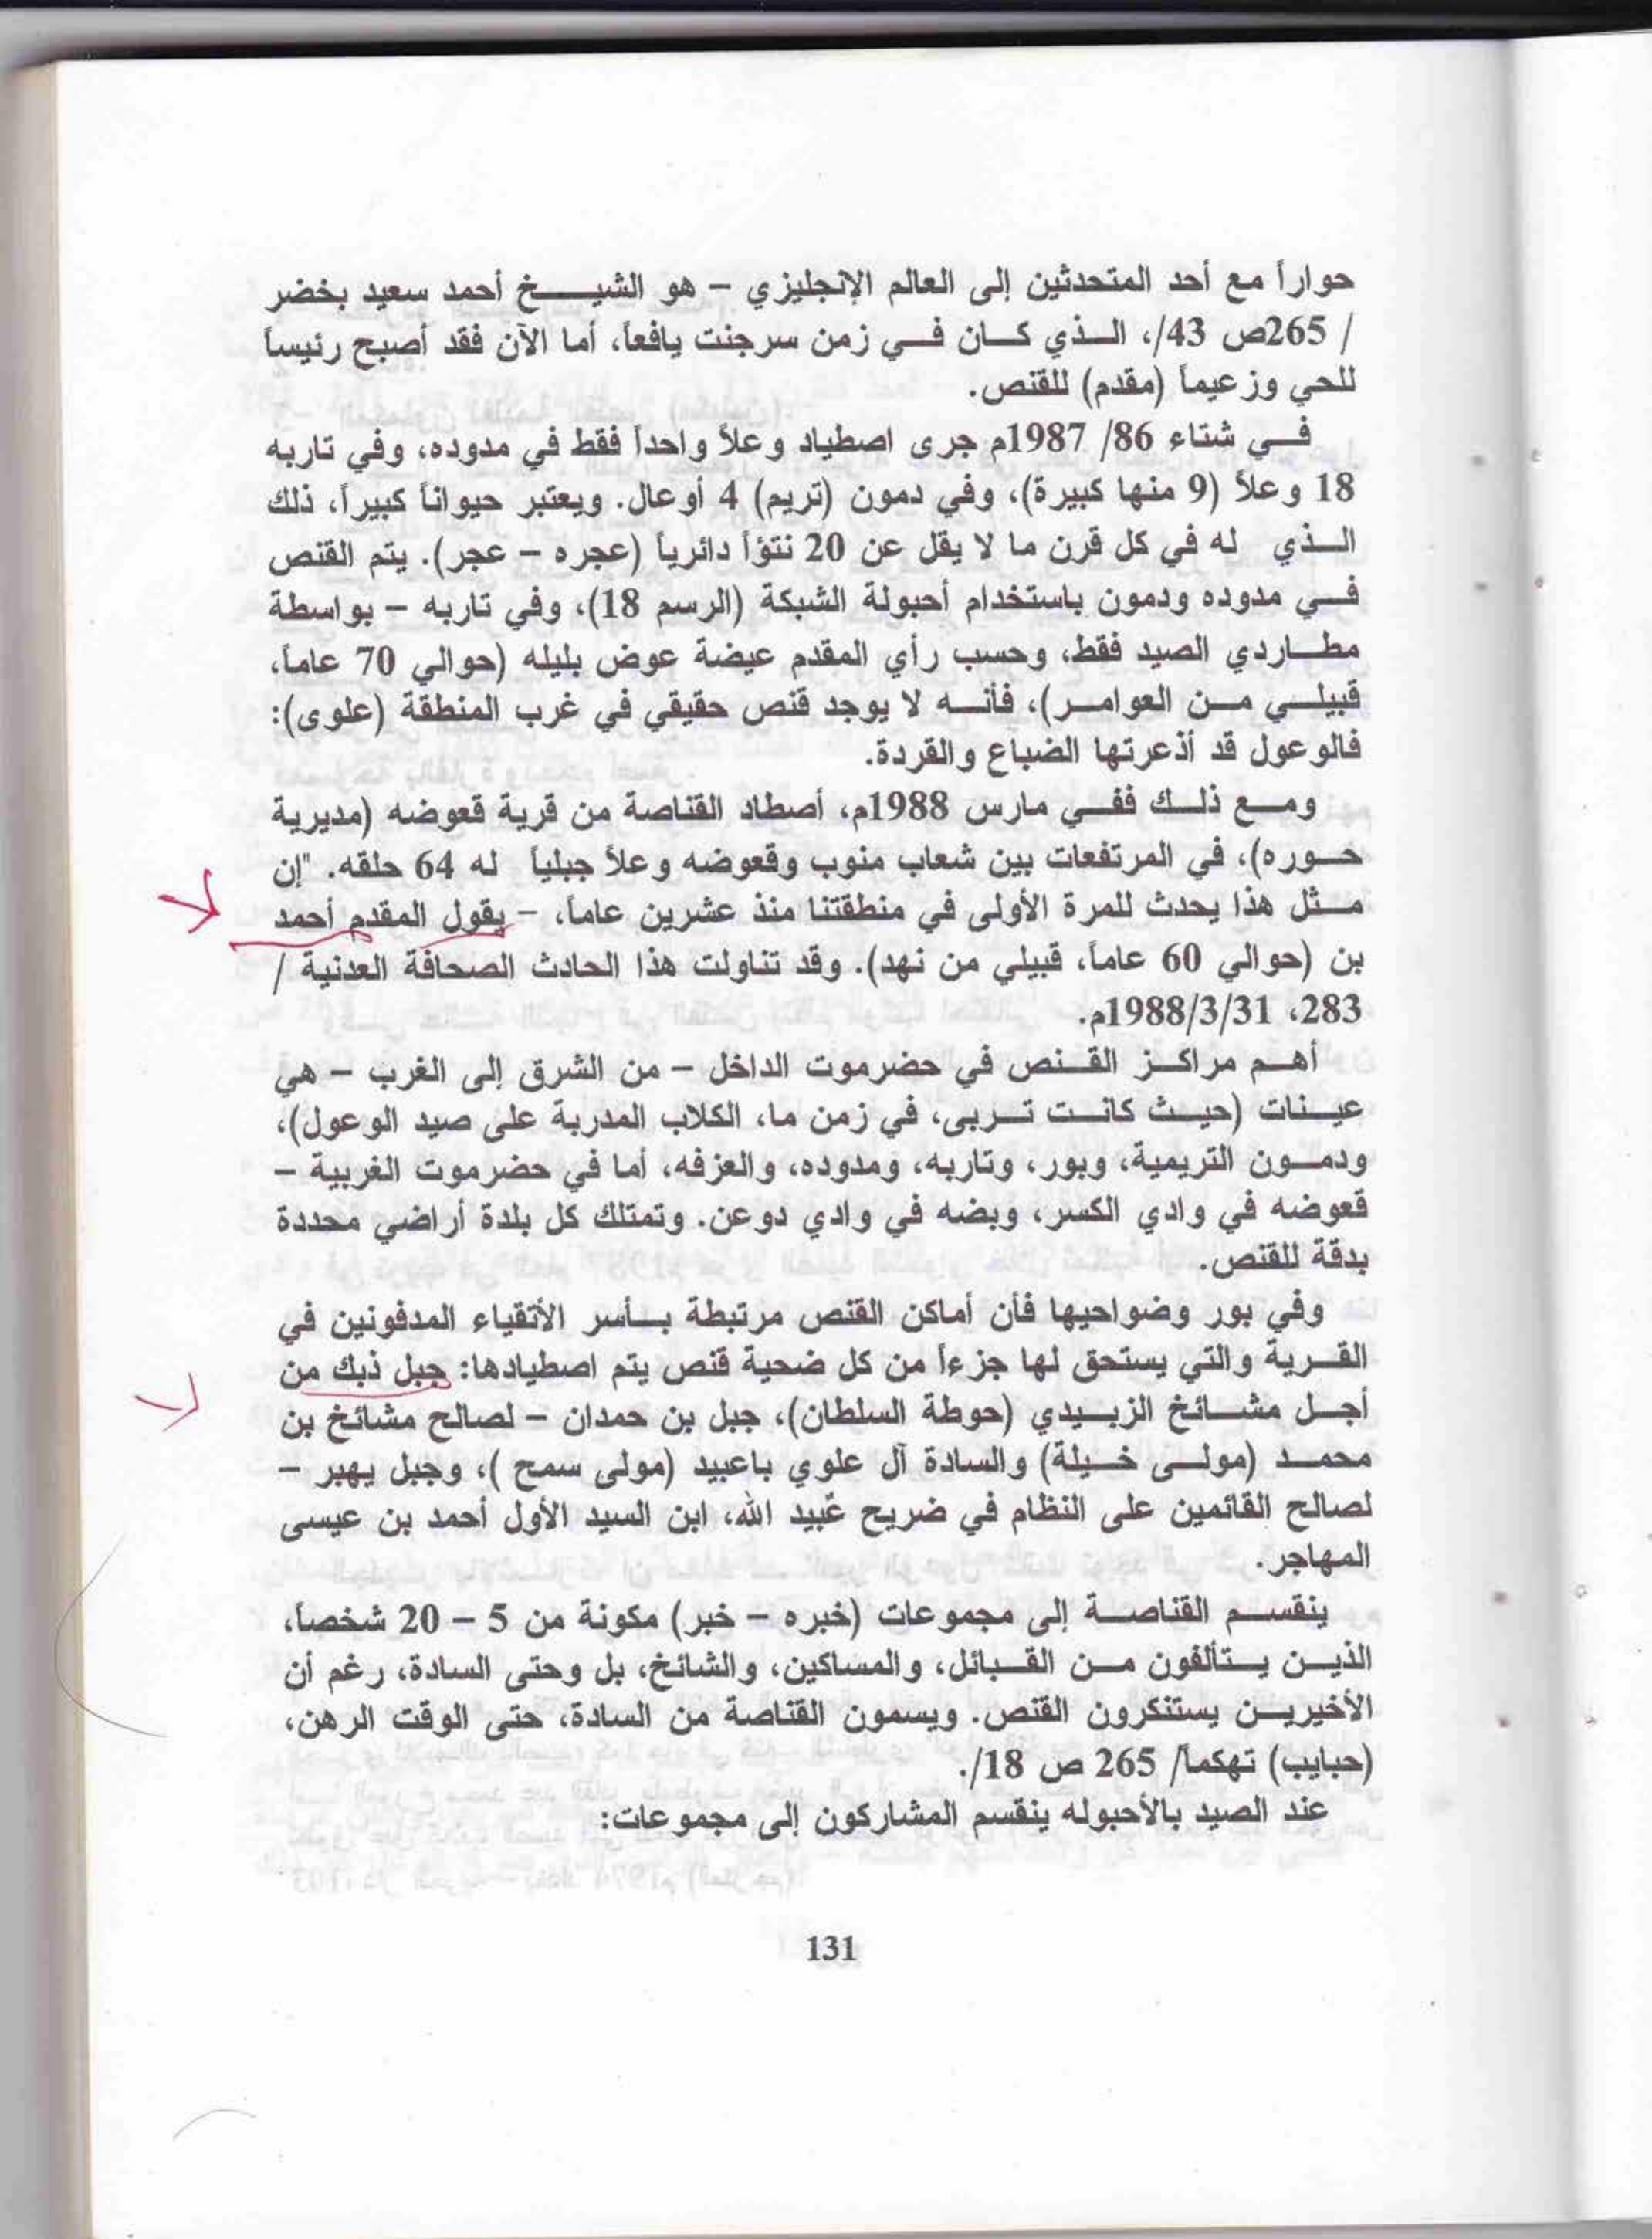 حواراً مع أحد المتحدثين إلى العالم الإنجليزي – هو الشيخ أحمد سعيد بخضر
/ 265ص 43/، الذي كان في زمن سرجنت يافعاً، أما الآن فقد أصبح رئيساً
للحي وزعيماً (مقدم) للقنص.
في شتاء 86/ 1987م جرى اصطياد وعلاً واحداً فقط في مدوده، وفي تاربه
18 وعلاً (9 منها كبيرة)، وفي دمون (تريم) 4 أوعال. ويعتبر حيواناً كبيراً، ذلك
الذي له في كل قرن ما لا يقل عن 20 نتؤاً دائرياً (عجره – عجر). يتم القنص
في مدوده ودمون باستخدام أحبولة الشبكة (الرسم 18)، وفي تاربه – بواسطة
مطاردي الصيد فقط، وحسب رأي المقدم عيضة عوض بليله (حوالي 70 عاماً،
قبيلي من العوامر)، فأنه لا يوجد قنص حقيقي في غرب المنطقة (علوى):
فالوعول قد أذعرتها الضباع والقردة.
ومع ذلك ففي مارس 1988م، أصطاد القناصة من قرية قعوضه (مديرية
حوره)، في المرتفعات بين شعاب منوب وقعوضه وعلاً جبلياً له 64 حلقه. "إن
مثل هذا يحدث للمرة الأولى في منطقتنا منذ عشرين عاماً، – يقول المقدم أحمد
بن (حوالي 60 عاماً، قبيلي من نهد). وقد تناولت هذا الحادث الصحافة العدنية /
283، 1988/3/31م.
أهم مراكز القنص في حضرموت الداخل – من الشرق إلى الغرب – هي
عينات (حيث كانت تربى، في زمن ما، الكلاب المدربة على صيد الوعول)،
ودمون التريمية، وبور، وتاربه، ومدوده، والعزفه، أما في حضرموت الغربية –
قعوضه في وادي الكسر، وبضه في وادي دوعن. وتمتلك كل بلدة أراضي محددة
بدقة للقنص.
وفي بور وضواحيها فأن أماكن القنص مرتبطة بأسر الأتقياء المدفونين في
القرية والتي يستحق لها جزءاً من كل ضحية قنص يتم اصطيادها: جبل ذبك من
أجل مشائخ الزبيدي (حوطة السلطان)، جبل بن حمدان – لصالح مشائخ بن
محمد (مولى خيلة) والسادة آل علوي باعبيد (مولى سمح )، وجبل يهبر –
لصالح القائمين على النظام في ضريح عُبيد الله، ابن السيد الأول أحمد بن عيسى
المهاجر.
ينقسم القناصة إلى مجموعات (خبره – خبر) مكونة من 5 – 20 شخصاً،
الذين يتألفون من القبائل، والمساكين، والشائخ، بل وحتى السادة، رغم أن
الأخيرين يستنكرون القنص. ويسمون القناصة من السادة، حتى الوقت الرهن،
(حبايب) تهكماً/ 265 ص 18/.
عند الصيد بالأحبوله ينقسم المشاركون إلى مجموعات:
131